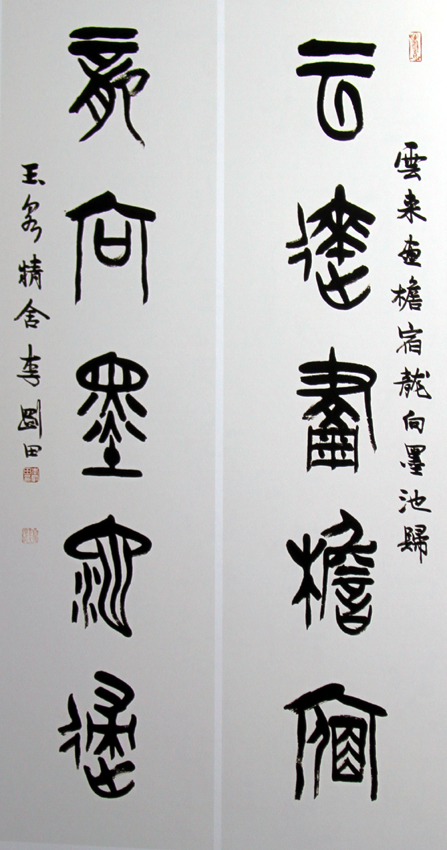 雲来画檐宿龍向墨池歸
云來畫檐宿
龍向墨池歸
玉泉精舍李剛田